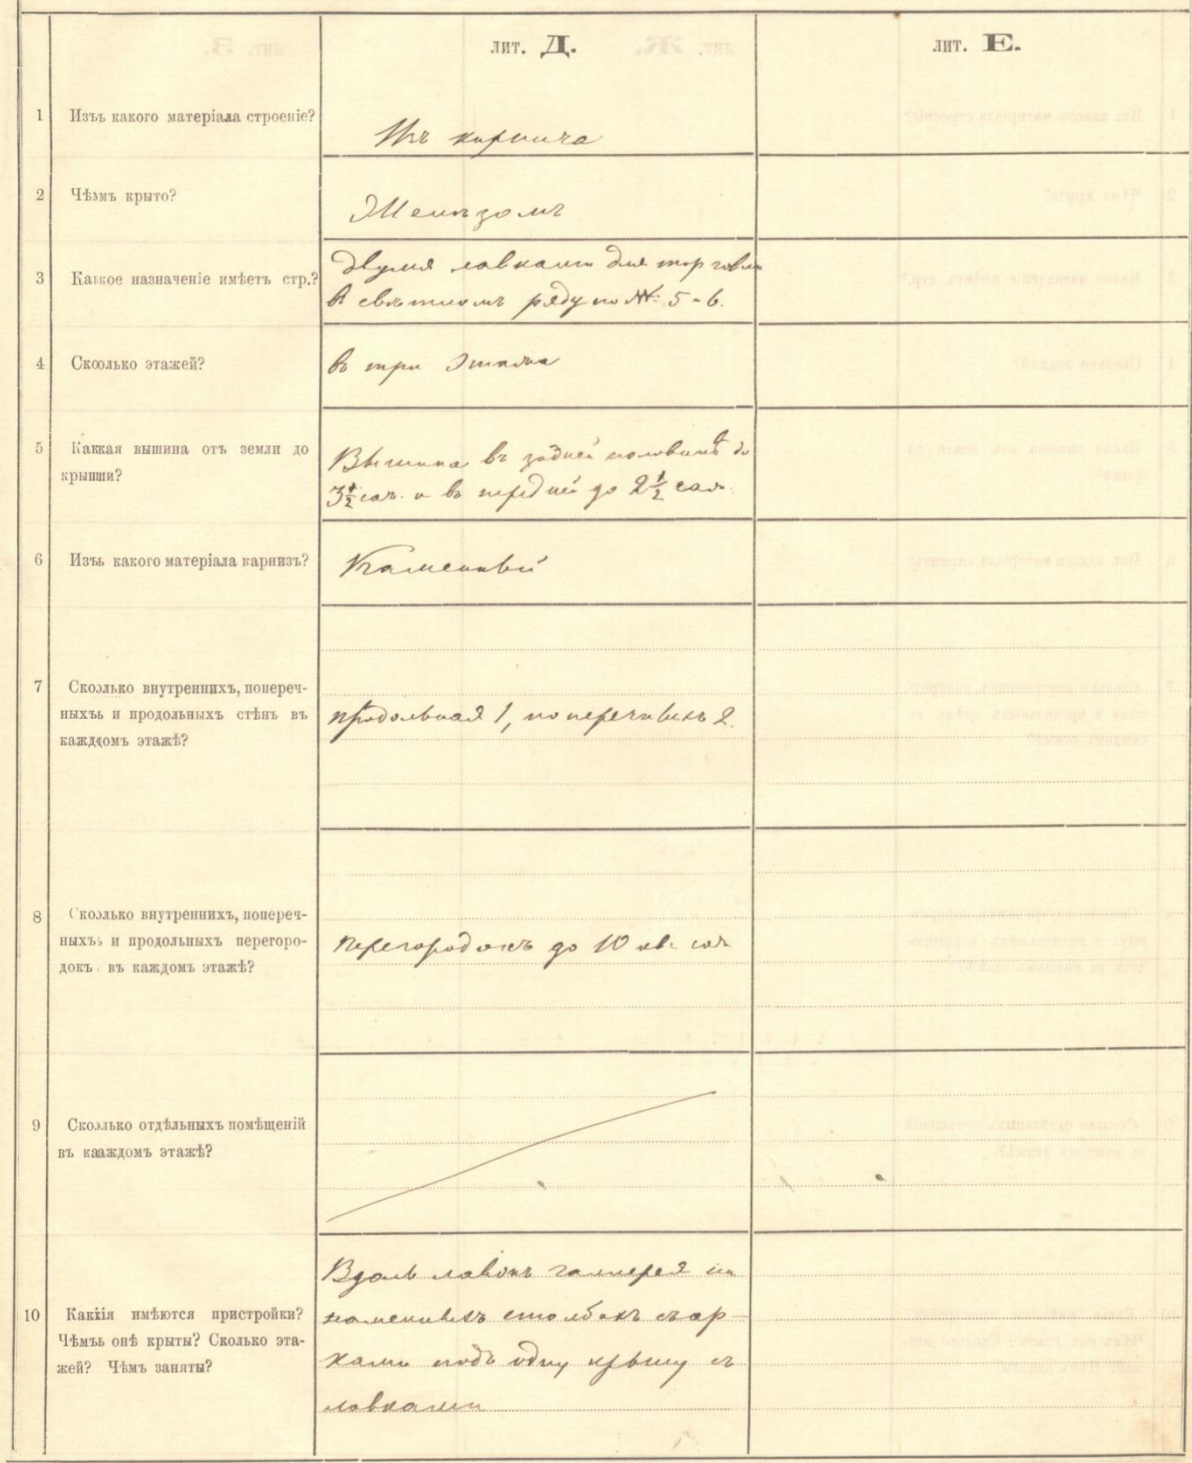 лит. Д.
лит. Е.
1 Изъ какого матеріала строеніе?
Изъ кирпича
2 Чѣмъ крыто?
Желѣзомъ
3 Какое назначеніе имѣетъ стр.?
Двумя лавками для торговли
в свѣтномъ ряду по №: 5-6.
4 Сколько этажей?
въ три этажа
5 Какая вышина отъ земли до
крыши?
Вышина въ задней половинѣ до
3 1/2 саж. и въ передней до 2 1/2 саж.
6 Изъ какого матеріала карнизъ?
Каменный
7 Сколько внутреннихъ, попереч-
ныхъ и продольныхъ стѣнъ въ
каждомъ этажѣ?
продольная 1, поперечныхъ 2.
8 Сколько внутреннихъ, попереч-
ныхъ и продольныхъ перегоро-
докъ въ каждомъ этажѣ?
Перегородокъ до 10 кв. саж
9 Сколько отдѣльныхъ помѣщеній
въ каждомъ этажѣ?
10 Какія имѣются пристройки?
Чѣмъ онѣ крыты? Сколько эта-
жей? Чѣмъ заняты?
Вдоль лавокъ галлерея на
каменныхъ столбахъ съ ар-
ками подъ одну крышу съ
лавками